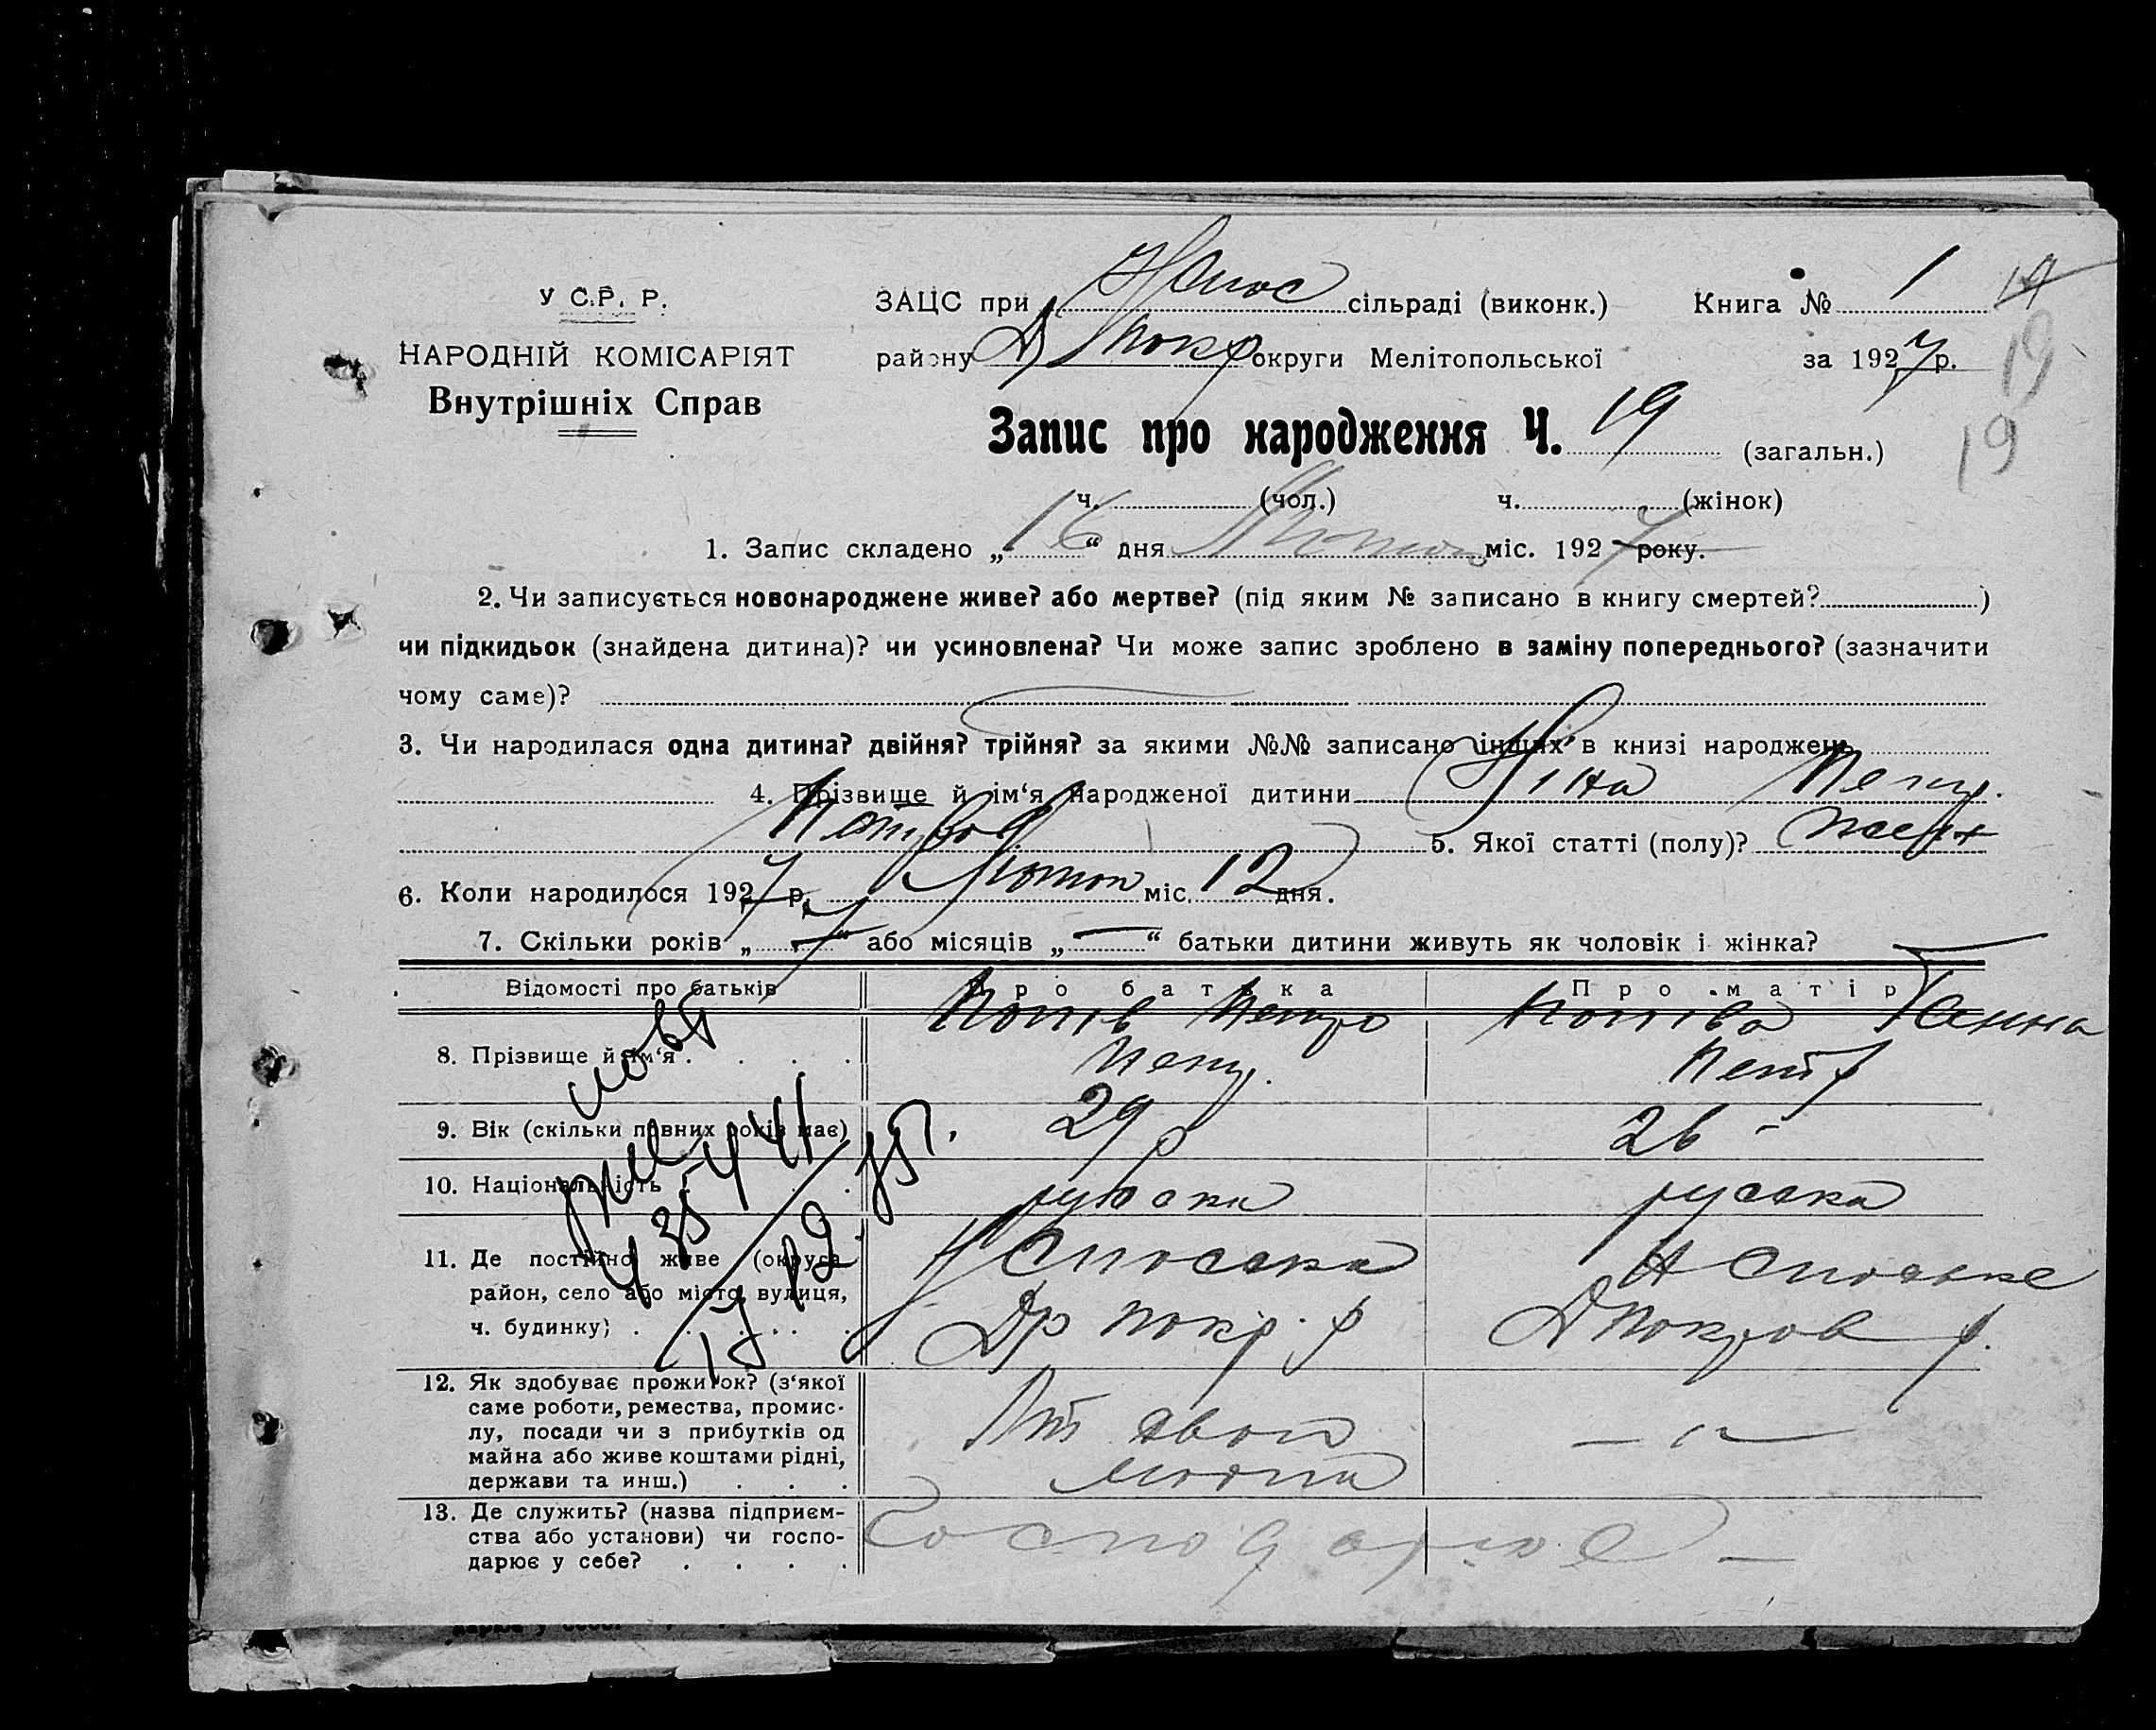 У С.Р. Р.
НАРОДНІЙ КОМІСАРІЯТ
Внутрішніх Справ
ЗАЦС при Н Спос сільраді (виконк.) Книга № 1
району Д Покр округи Мелітопольської за 1927 р.
19
Запис про народження Ч. 19 (загальн.)
19
ч. (чол.) ч. (жінок)
1. Запис складено „16“ дня міс. 1927 року.
2. Чи записується новонароджене живе? або мертве? (під яким № записано в книгу смертей? )
чи підкидьок (знайдена дитина)? чи усиновлена? Чи може запис зроблено в заміну попереднього? (зазначити
чому саме)?
3. Чи народилася одна дитина? двійня? трійня? за якими №№ записано інших в книзі народжень
4. Прізвище й ім‘я народженої дитини Ніна Петр.
5. Якої статті (полу)?
6. Коли народилося 1927 р. Лютого міс. 12 дня.
7. Скільки років „7“ або місяців „—“ батьки дитини живуть як чоловік і жінка?
Відомості про батьків Про батька Про матір
8. Прізвище й ім‘я . . . . Котів Петро Котіва Ганна
Петр. Петр
9. Вік (скільки повних років має) 29 р 26 –
10. Національність . . . руська руська
11. Де постійно живе (округа, Н Спосска Н Споське
район, село або місто, вулиця, Др покр. р Д Покров р.
ч. будинку) . . . . .
12. Як здобуває прожиток? (з‘якої
саме роботи, ремества, промис-
лу, посади чи з прибутків од
майна або живе коштами рідні,
держави та инш.) . . .
— „ —
13. Де служить? (назва підприєм-
ства або установи) чи госпо-
дарює у себе? . . . .
Господарює –